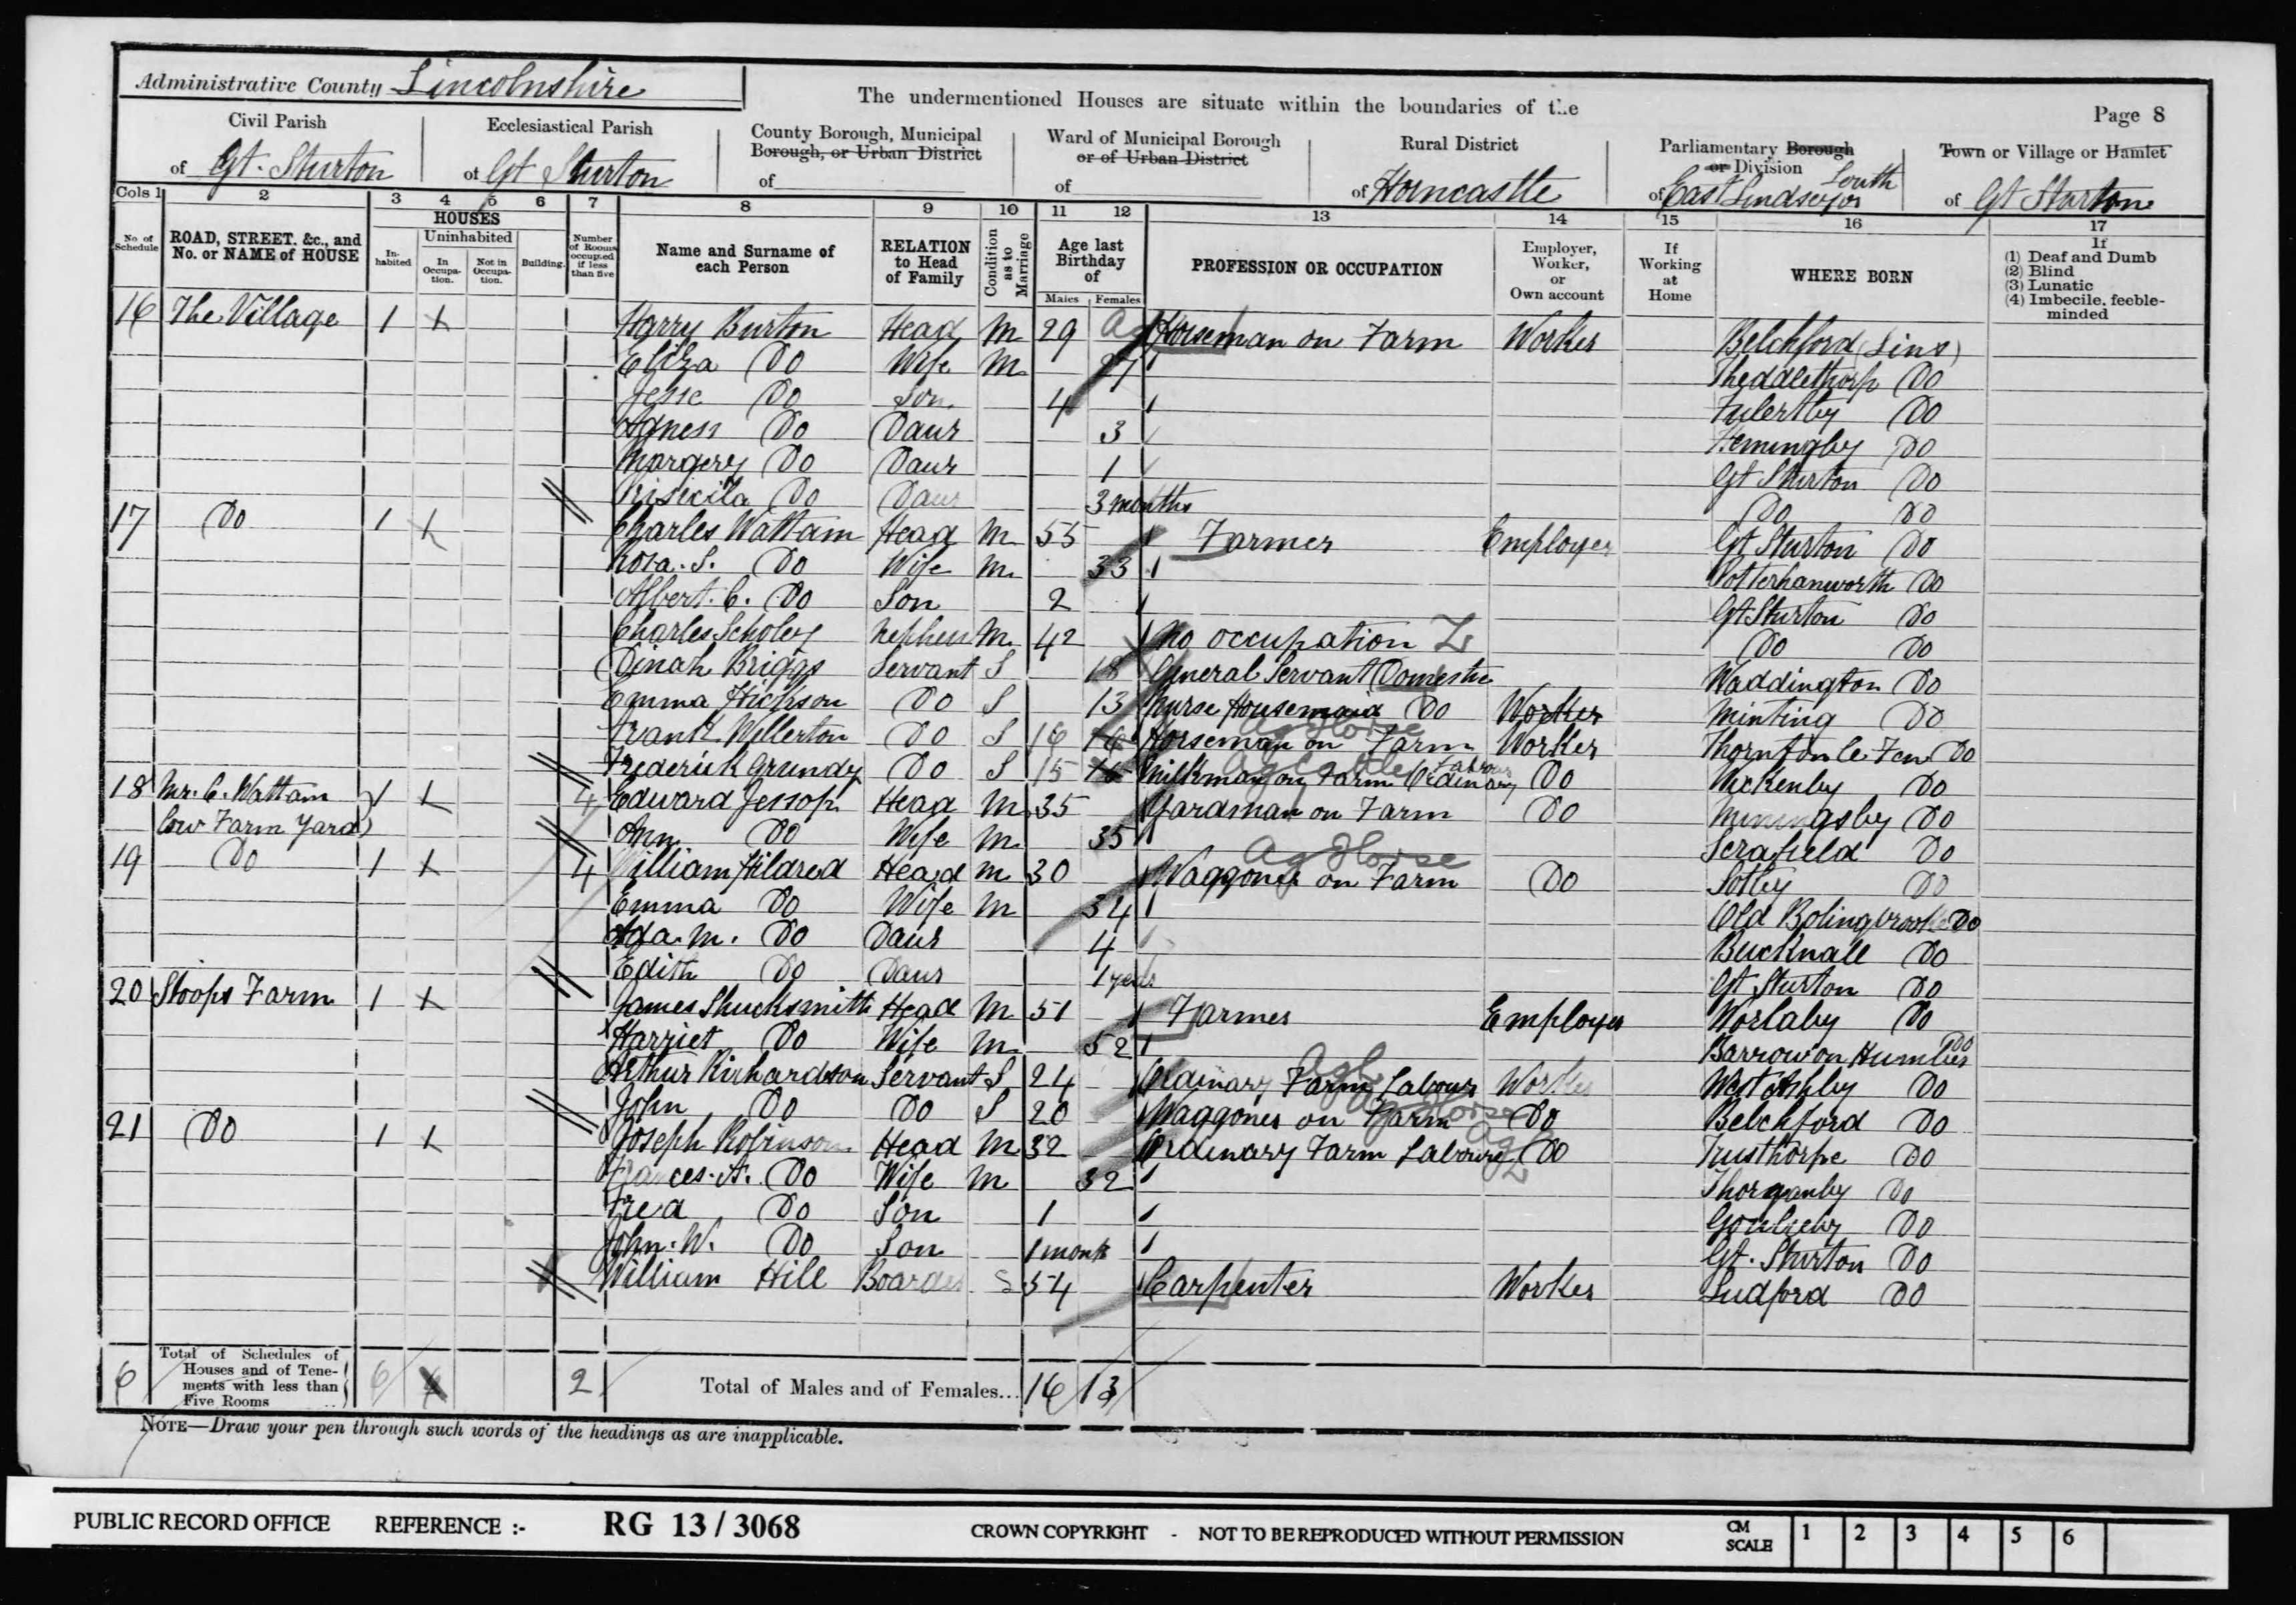 Administrative County Lincolnshire
The undermentioned Houses are situate within the boundaries of the
Page 8
Civil Parish of Gt. Sturton
Ecclesiastical Parish of Gt Sturton
County Borough, Municipal Borough, or Urban District of
Ward of Municipal Borough or of Urban District of
Rural District of Horncastle
Parliamentary Borough or Division of East Lindsey or South
Town or Village or Hamlet of Gt Sturton
Cols 1 2 3 4 5 6 7 8 9 10 11 12 13 14 15 16 17
No of Schedule
ROAD, STREET, &c., and No. or NAME of HOUSE
HOUSES
Inhabited
Uninhabited
In Occupation.
Not in Occupation.
Building.
Number of Rooms occupied if less than five
Name and Surname of each Person
RELATION to Head of Family
Condition as to Marriage
Age last Birthday of
Males Females
PROFESSION OR OCCUPATION
Employer, Worker, or Own account
If Working at Home
WHERE BORN
If (1) Deaf and Dumb (2) Blind (3) Lunatic (4) Imbecile, feeble-minded
16 The Village 1 Harry Burton Head M 29 Ag Horseman on Farm Worker Belchford (Lins)
Eliza Do Wife M 27 Theddlethorp Do
Jesse Do Son 4 Fulertby Do
Agness Do Daur 3 Hemingby Do
Margery Do Daur 1 Gt Sturton Do
Do Daur 3 months Do Do
17 Do 1 Charles Wattam Head M 55 Farmer Employer Gt Sturton Do
Rosa. S. Do Wife M 33 Potterhanworth Do
Albert. C. Do Son 2 Gt Sturton Do
Charles Scholey Nephew M 42 No occupation Do Do
Dinah Briggs Servant S 18 General Servant Domestic Waddington Do
Emma Hickson Do S 13 Nurse Housemaid Do Worker Minting Do
Frank Willerton Do S 16 16 Horseman on Farm Ag Horse Worker Thornton le Fen Do
Frederick Grundy Do S 15 15 Milkman on Farm Ordinary Labour Ag Cattle Do Wickenby Do
18 Mr. C. Wattam Cow Farm Yard 1 4 Edward Jessop Head M 35 Yardman on Farm Do Miningsby Do
Ann Do Wife M 35 Scrafield Do
19 Do 1 4 William Hildred Head M 30 Waggoner on Farm Ag Horse Do Sotby Do
Emma Do Wife M 34 Old Bolingbrooke Do
Ada. M. Do Daur 4 Bucknall Do
Edith Do Daur 1 Gt Sturton Do
20 Stoops Farm 1 James Shucksmith Head M 51 Farmer Employer Worlaby Do
Harriet Do Wife M 52 Barrow on Humber Do
Arthur Richardson Servant S 24 Ordinary Farm Labour Ag L Worker West Ashby Do
John Do Do S 20 Waggoner on Farm Ag Horse Do Belchford Do
21 Do 1 Joseph Robinson Head M 32 Ordinary Farm Labourer Ag L Do Trusthorpe Do
Frances. A. Do Wife M 32 Thorganby Do
Fred Do Son 1 Do
John. W. Do Son 1 month Gt. Sturton Do
William Hill Boarder S 54 Carpenter Worker Ludford Do
6 Total of Schedules of Houses and of Tenements with less than Five Rooms 6 2 Total of Males and of Females... 16 13
NOTE—Draw your pen through such words of the headings as are inapplicable.
PUBLIC RECORD OFFICE REFERENCE :- RG 13 / 3068 CROWN COPYRIGHT - NOT TO BE REPRODUCED WITHOUT PERMISSION CM SCALE 1 2 3 4 5 6